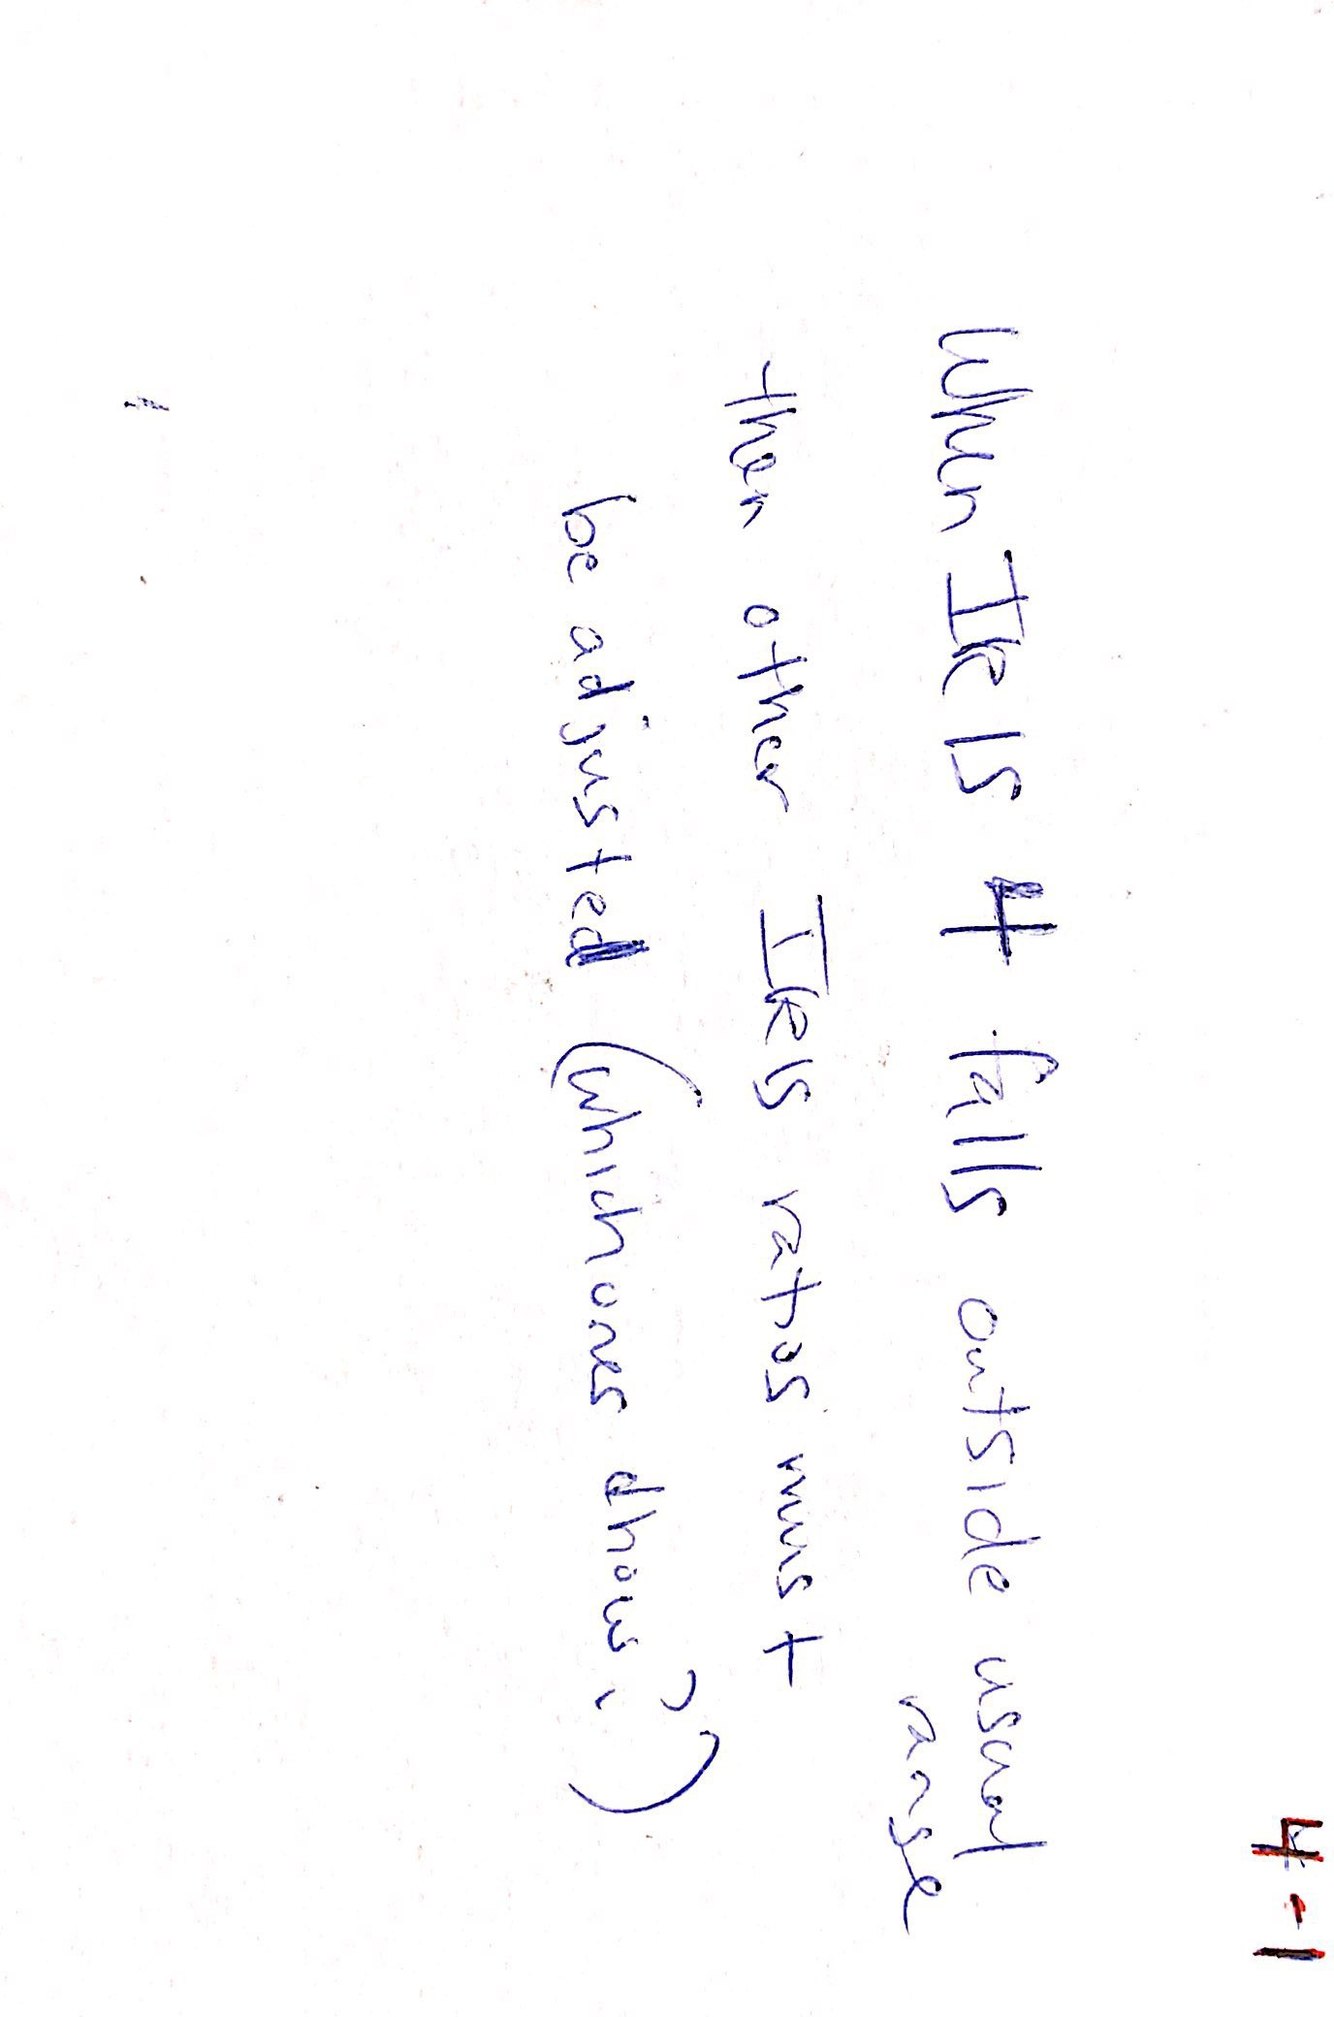 4-1
When IRIS 4 falls outside usual
range
then other IRIS ratios must
be adjusted (which ones & how?)